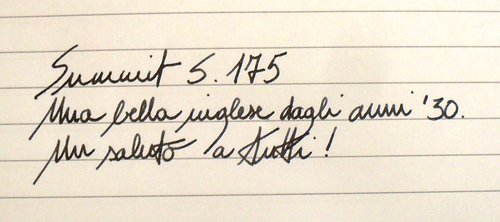 Summit S. 175
Una bella inglese dagli anni '30.
Un saluto a tutti!